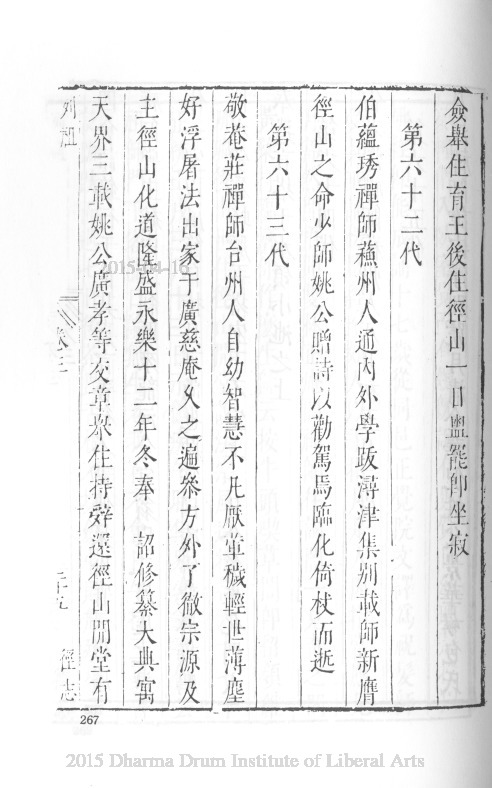 僉舉住育王後住徑山一日盥罷即坐寂
第六十二代
伯蘊琇禪師蘓州人通內外學跋潯津集別載師新膺
徑山之命少師姚公贈詩以勸駕焉臨化倚杖而逝
第六十三代
敬菴莊禪師台州人自幼智慧不凡厭葷穢輕世薄塵
好浮屠法出家于廣慈庵久之遍叅方外了徹宗源及
主徑山化道隆盛永樂十二年冬奉 詔修纂大典寓
天界三載姚公廣孝等交章衆住持辤還徑山開堂有
列祖
卷三
二十九
徑志
267
2015-04-16
2015 Dharma Drum Institute of Liberal Arts